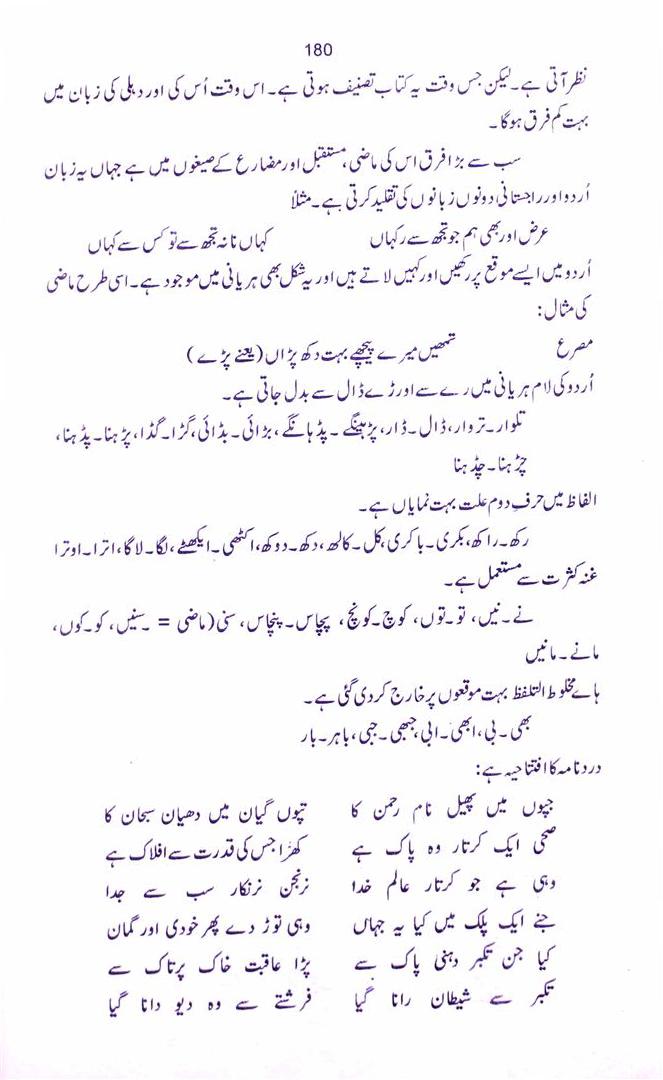 180
نظر آتی ہے۔ لیکن جس وقت یہ کتاب تصنیف ہوتی ہے۔ اس وقت اُس کی اور دہلی کی زبان میں
بہت کم فرق ہوگا۔
سب سے بڑا فرق اس کی ماضی، مستقبل اور مضارع کے صیغوں میں ہے جہاں یہ زبان
اُردو اور راجستانی دونوں زبانوں کی تقلید کرتی ہے۔ مثلاً
عرض اور بھی ہم جو تجھ سے رکہاں کہاں نانہ تجھ سے تو کس سے کہاں
اُردو میں ایسے موقع پر رکھیں اور کہیں لاتے ہیں اور یہ شکل بھی ہریانی میں موجود ہے۔ اسی طرح ماضی
کی مثال:
مصرع تمھیں میرے پیچھے بہت دکھ پڑاں (یعنے پڑے)
اُردو کی لام ہریانی میں رے سے اور ڑے ڈال سے بدل جاتی ہے۔
تلوار۔ تروار، ڈال۔ ڈار، پڑہینگے۔ پڈہانگے، بڑائی۔ بڈائی، گڑا۔ گڈا، پڑہنا۔ پڈہنا،
چڑہنا۔ چڈہنا
الفاظ میں حرفِ دوم علت بہت نمایاں ہے۔
رکھ۔ راکھ، بکری۔ باکری، کل۔ کالھ، دکھ۔ دوکھ، اکٹھی۔ ایکھٹے، لگا۔ لاگا، اترا۔ اوترا
غنہ کثرت سے مستعمل ہے۔
نے۔ نیں، تو۔ توں، کوچ۔ کونچ، پچاس۔ پنچاس، سنی (ماضی = سنیں، کو۔ کوں،
مانے۔ مانیں
ہاے مخلوط التلفظ بہت موقعوں پر خارج کردی گئی ہے۔
بھی۔ بی، ابھی۔ ابی، جبھی۔ جبی، باہر۔ بار
درد نامہ کا افتتاحیہ ہے:
جپوں میں پھیل نام رحمن کا تپوں گیان میں دھیان سبحان کا
صحی ایک کرتار وہ پاک ہے کھڑا جس کی قدرت سے افلاک ہے
وہی ہے جو کرتار عالم خدا نرنجن نرنکار سب سے جدا
جنے ایک پلک میں کیا یہ جہاں وہی توڑ دے پھر خودی اور گمان
کیا جن تکبر دہنی پاک سے پڑا عاقبت خاک پرتاک سے
تکبر سے شیطان رانا گیا فرشتے سے وہ دیو دانا گیا